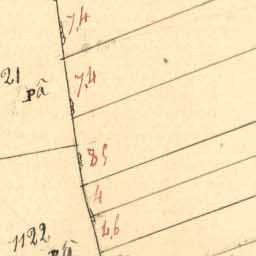 7,4
21
pâ
7,4
8,5
4
4,6
1122
pâ